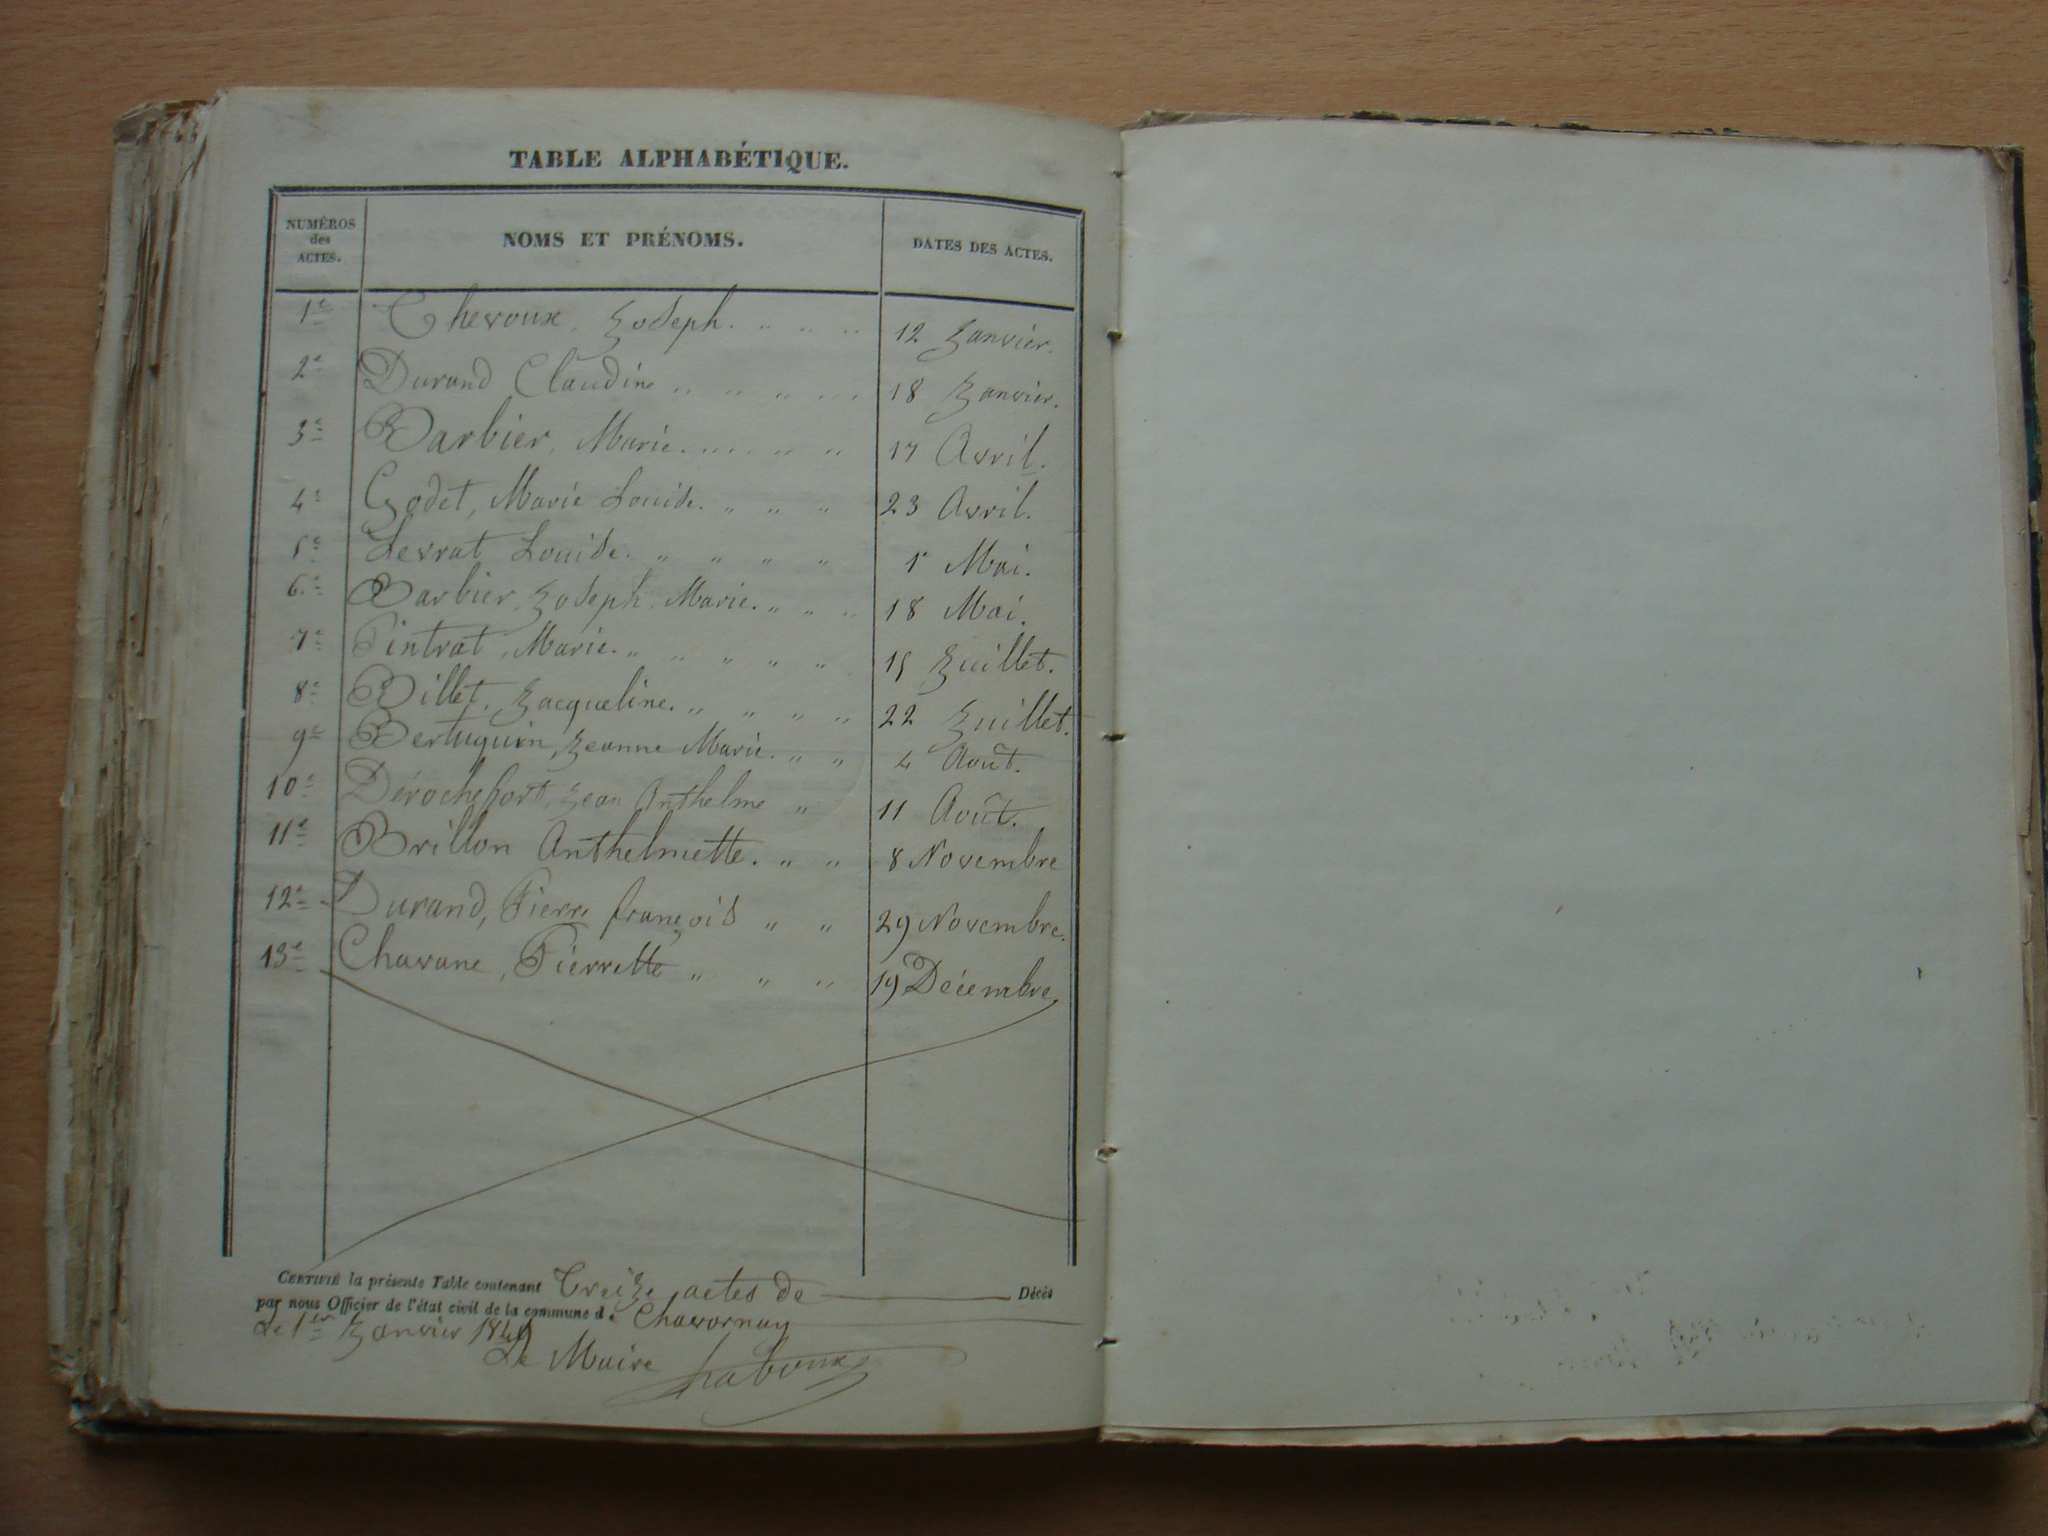 TABLE ALPHABÉTIQUE.
NUMÉROS des ACTES. NOMS ET PRÉNOMS. DATES DES ACTES.
1e Chevoux, Joseph. " " " 12 Janvier.
2e Durand Claudine " " " " 18 Janvier.
3e Barbier, Marie. " " " 17 Avril.
4e Godet, Marie Louise. " " " 23 Avril.
5e Levrat Louise. " " " " 1r Mai.
6e Barbier, Joseph Marie. " " " 18 Mai.
7e Pintrat, Marie. " " " " " 15 Juillet.
8e Billet, Jacqueline. " " " " 22 Juillet.
9e Bertuquin, Jeanne Marie. " " 4 Août.
10e Dérochefort, Jean Anthelme " 11 Août.
11e Brillon Anthelmette. " " 8 Novembre
12e Durand, Pierre françois " " 29 Novembre.
13e Chavane, Pierrette " " " 19 Décembre
CERTIFIÉ la présente Table contenant Treize actes de Décès
par nous Officier de l'état civil de la commune de Chavornay
Le 1er Janvier
Le Maire